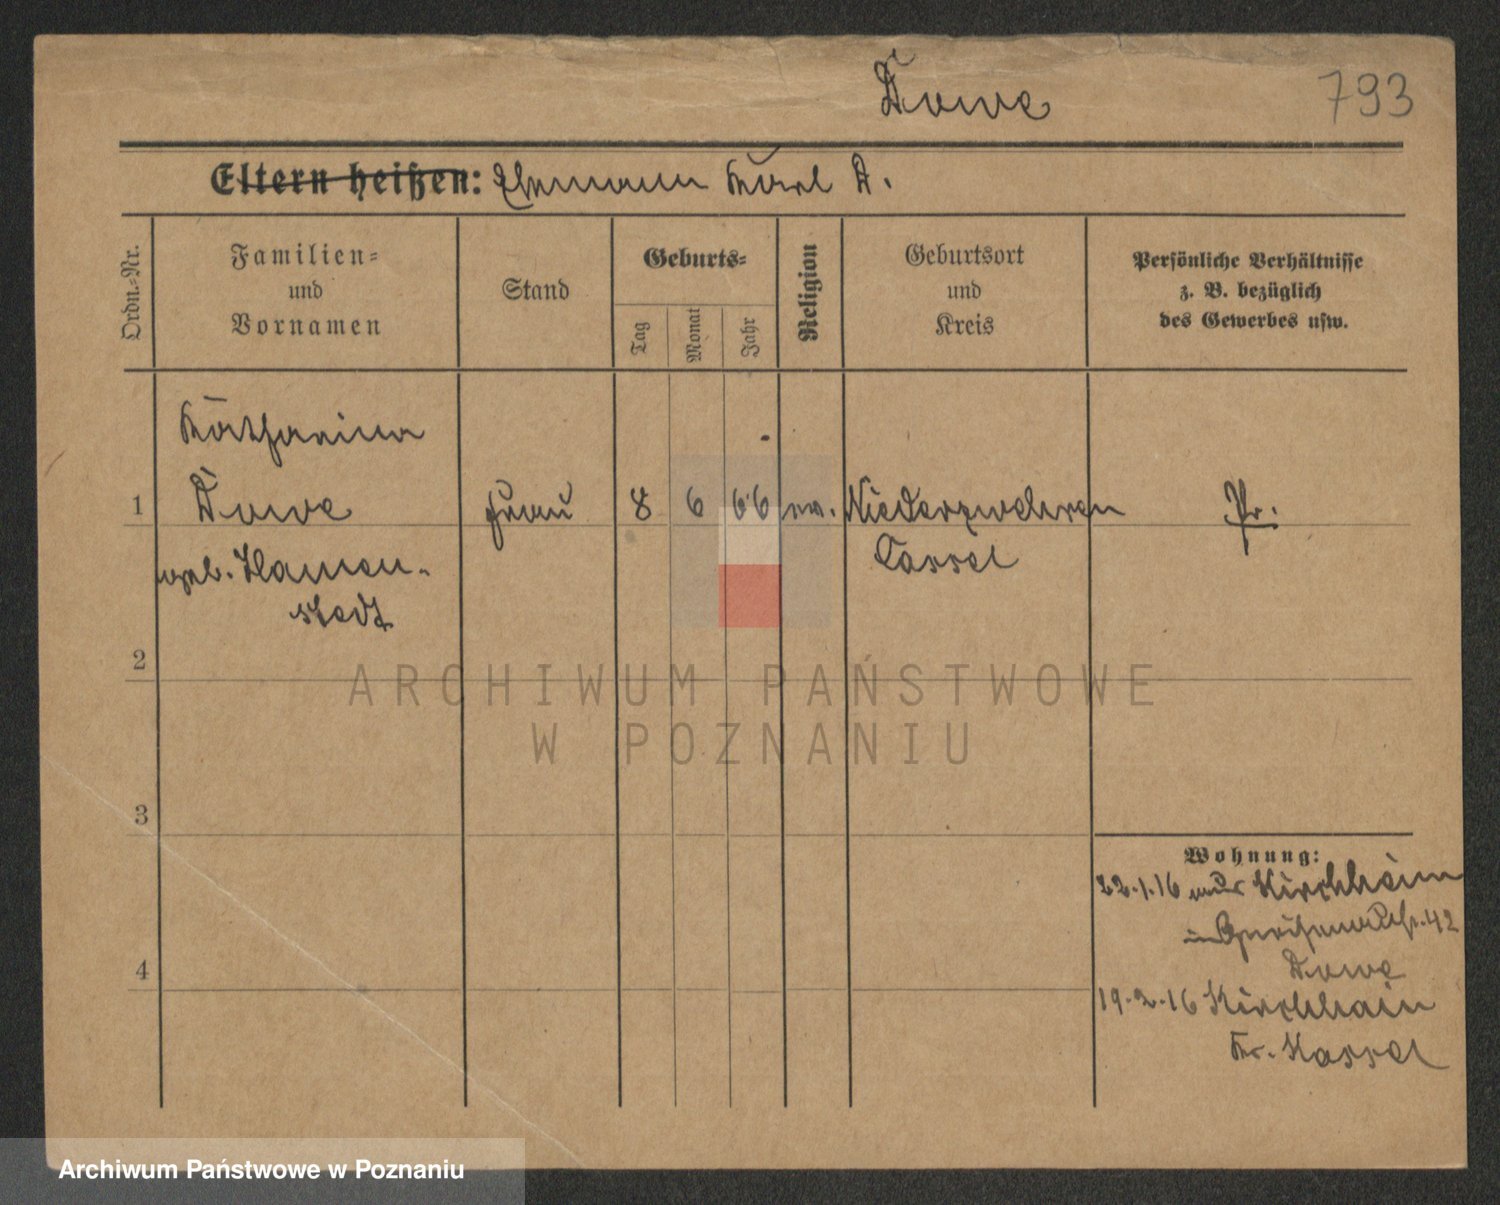 Dowe
793
Eltern heißen: Ehemann Karl D.
Ordn.-Nr.
Familien-
und
Vornamen
Stand
Geburts-
Tag
Monat
Jahr
Religion
Geburtsort
und
Kreis
Persönliche Verhältnisse
z. B. bezüglich
des Gewerbes usw.
Katharina
1 Dowe Frau 8 6 66 ev. Niederzwehren Pr.
geb. Hamen- Cassel
stedt
2
ARCHIWUM PAŃSTWOWE
W POZNANIU
3
Wohnung:
22.1.16 aus Kirchheim
in 42
Dowe
4
19.2.16 Kirchhain
Kr. Kassel
Archiwum Państwowe w Poznaniu